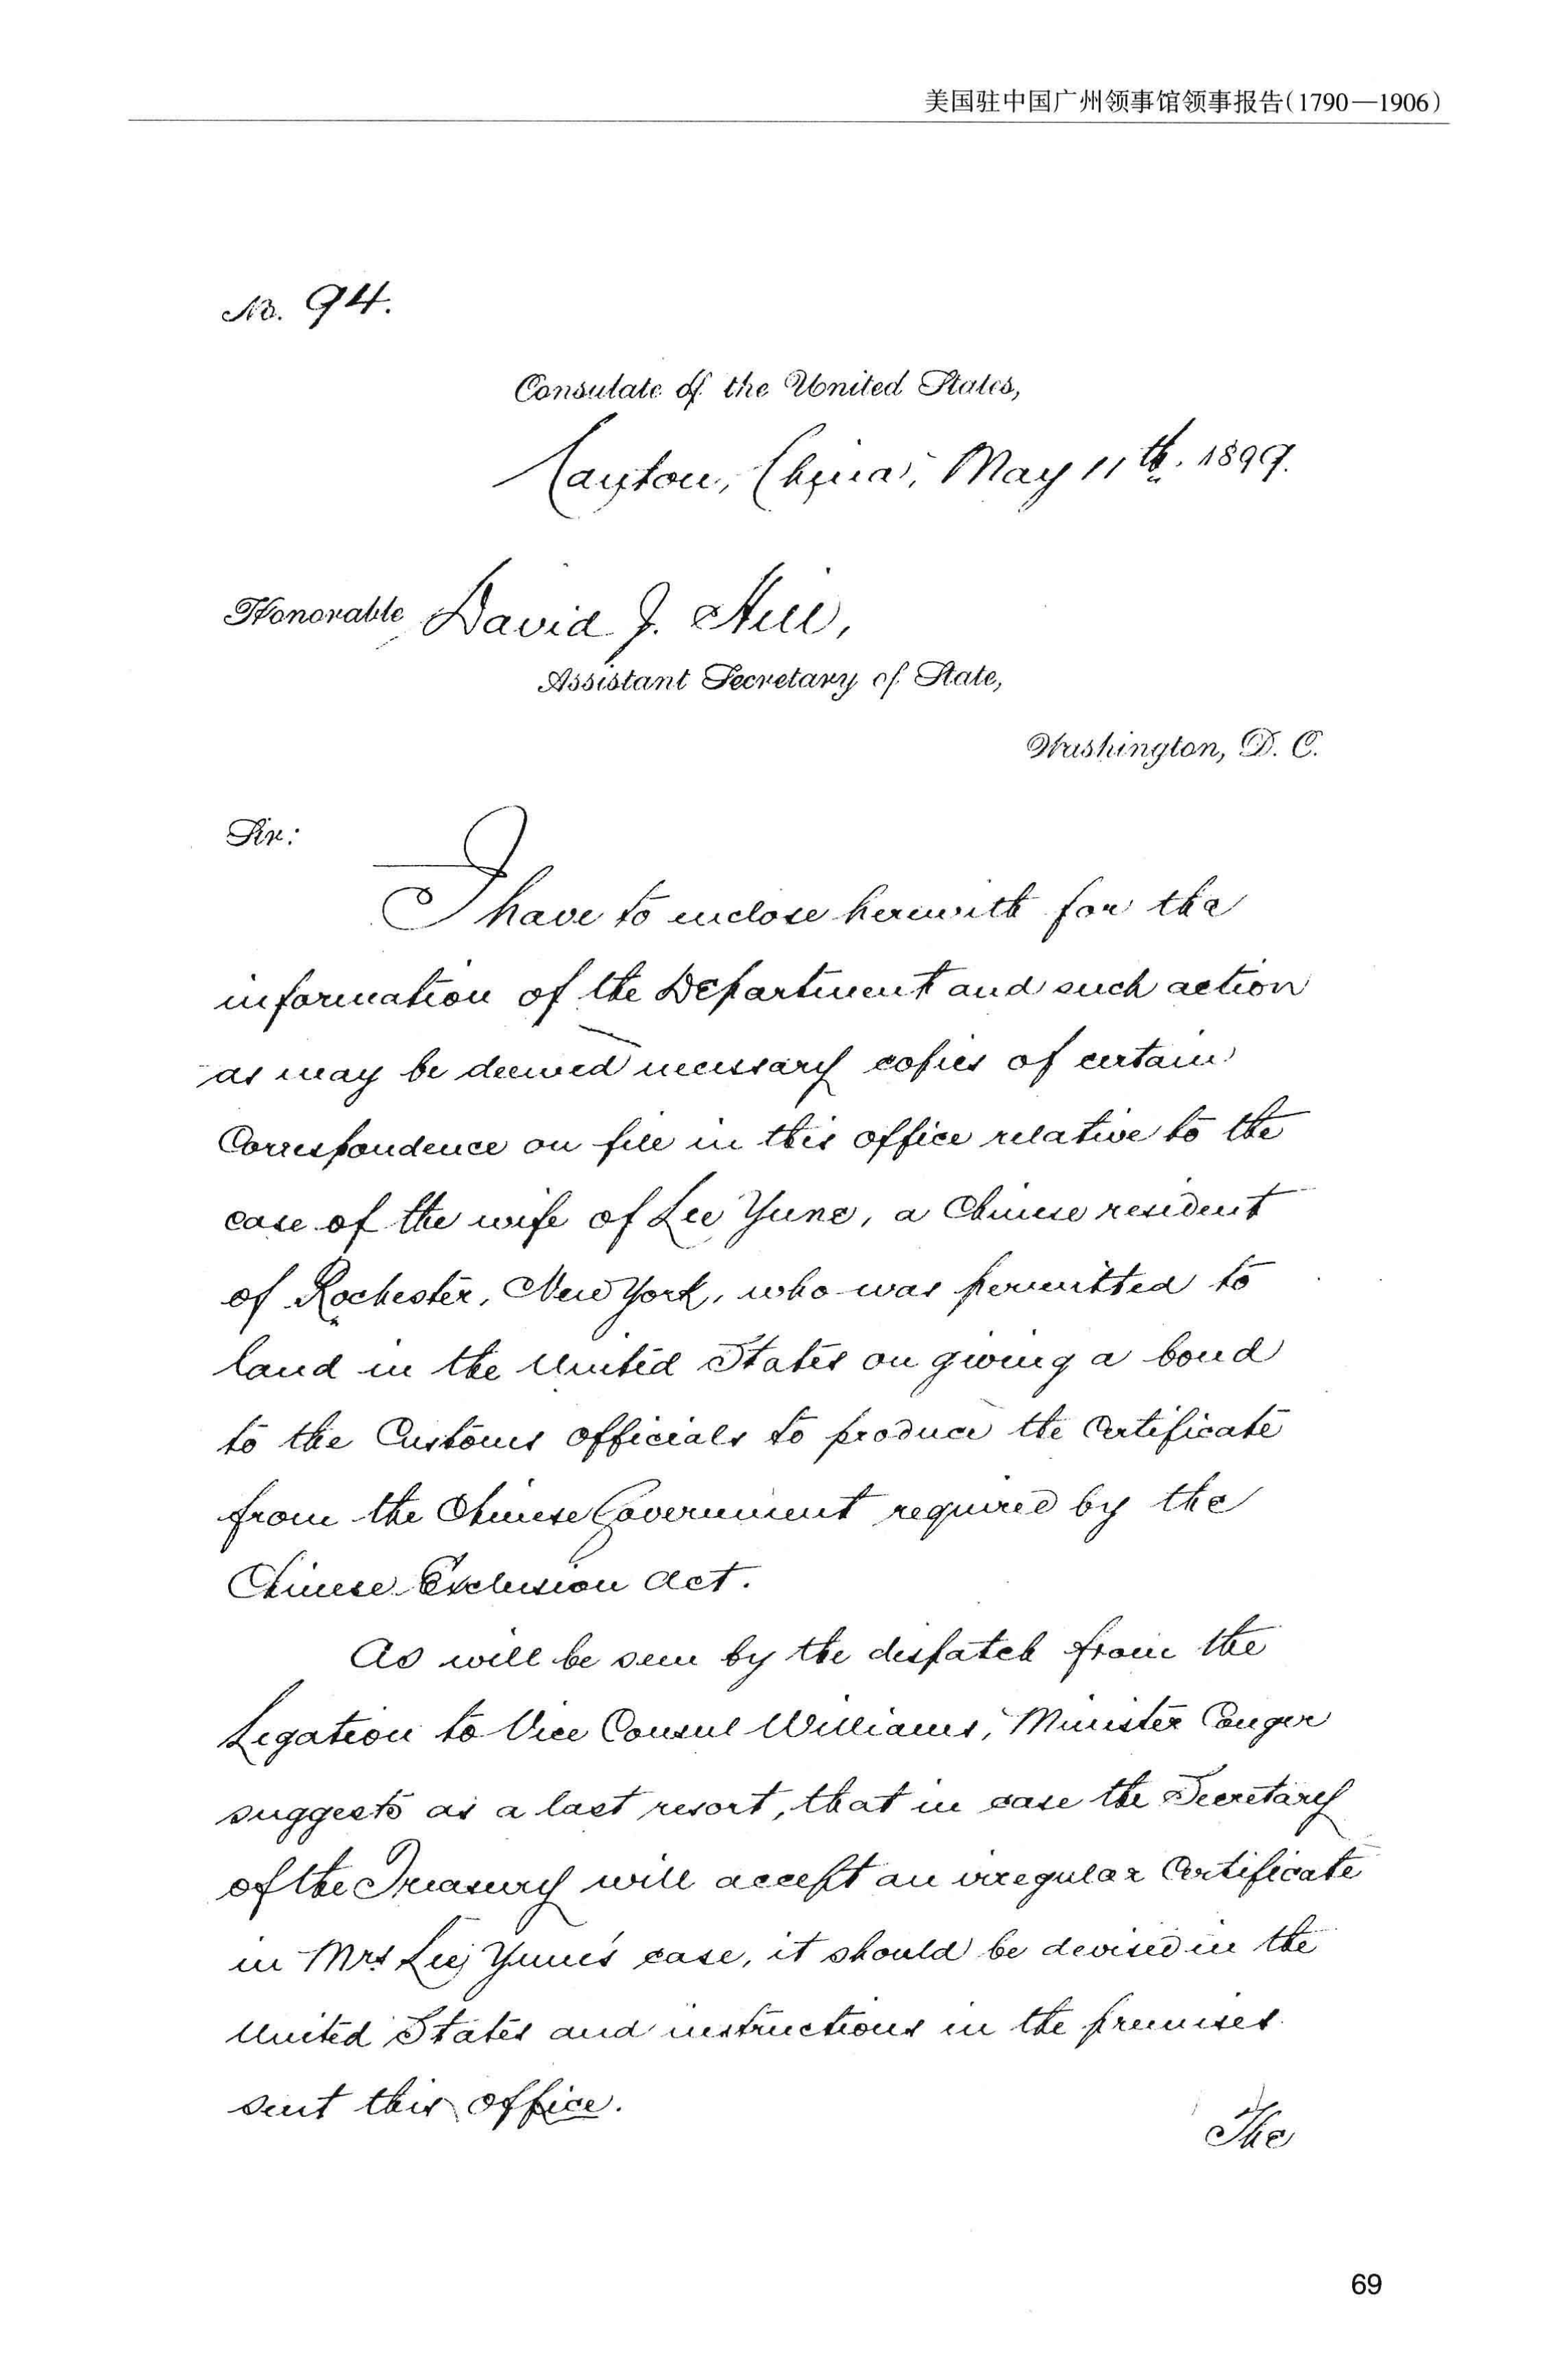 美国驻中国广州领事馆领事报告(1790—1906)
No. 94.
Consulate of the United States,
Canton, China, May 11th. 1899.
Honorable David J. Hill,
Assistant Secretary of State,
Washington, D. C.
Sir:
I have to inclose herewith for the
information of the Department and such action
as may be deemed necessary copies of certain
Correspondence on file in this office relative to the
case of the wife of Lee Yune, a Chinese resident
of Rochester, New York, who was permitted to
land in the United States on giving a bond
to the Customs officials to produce the Certificate
from the Chinese Government required by the
Chinese Exclusion Act.
As will be seen by the dispatch from the
Legation to Vice Consul Williams, Minister Conger
suggests as a last resort, that in case the Secretary
of the Treasury will accept an irregular Certificate
in Mrs Lee Yune's case, it should be devised in the
United States and instructions in the premises
sent this office.
The
69